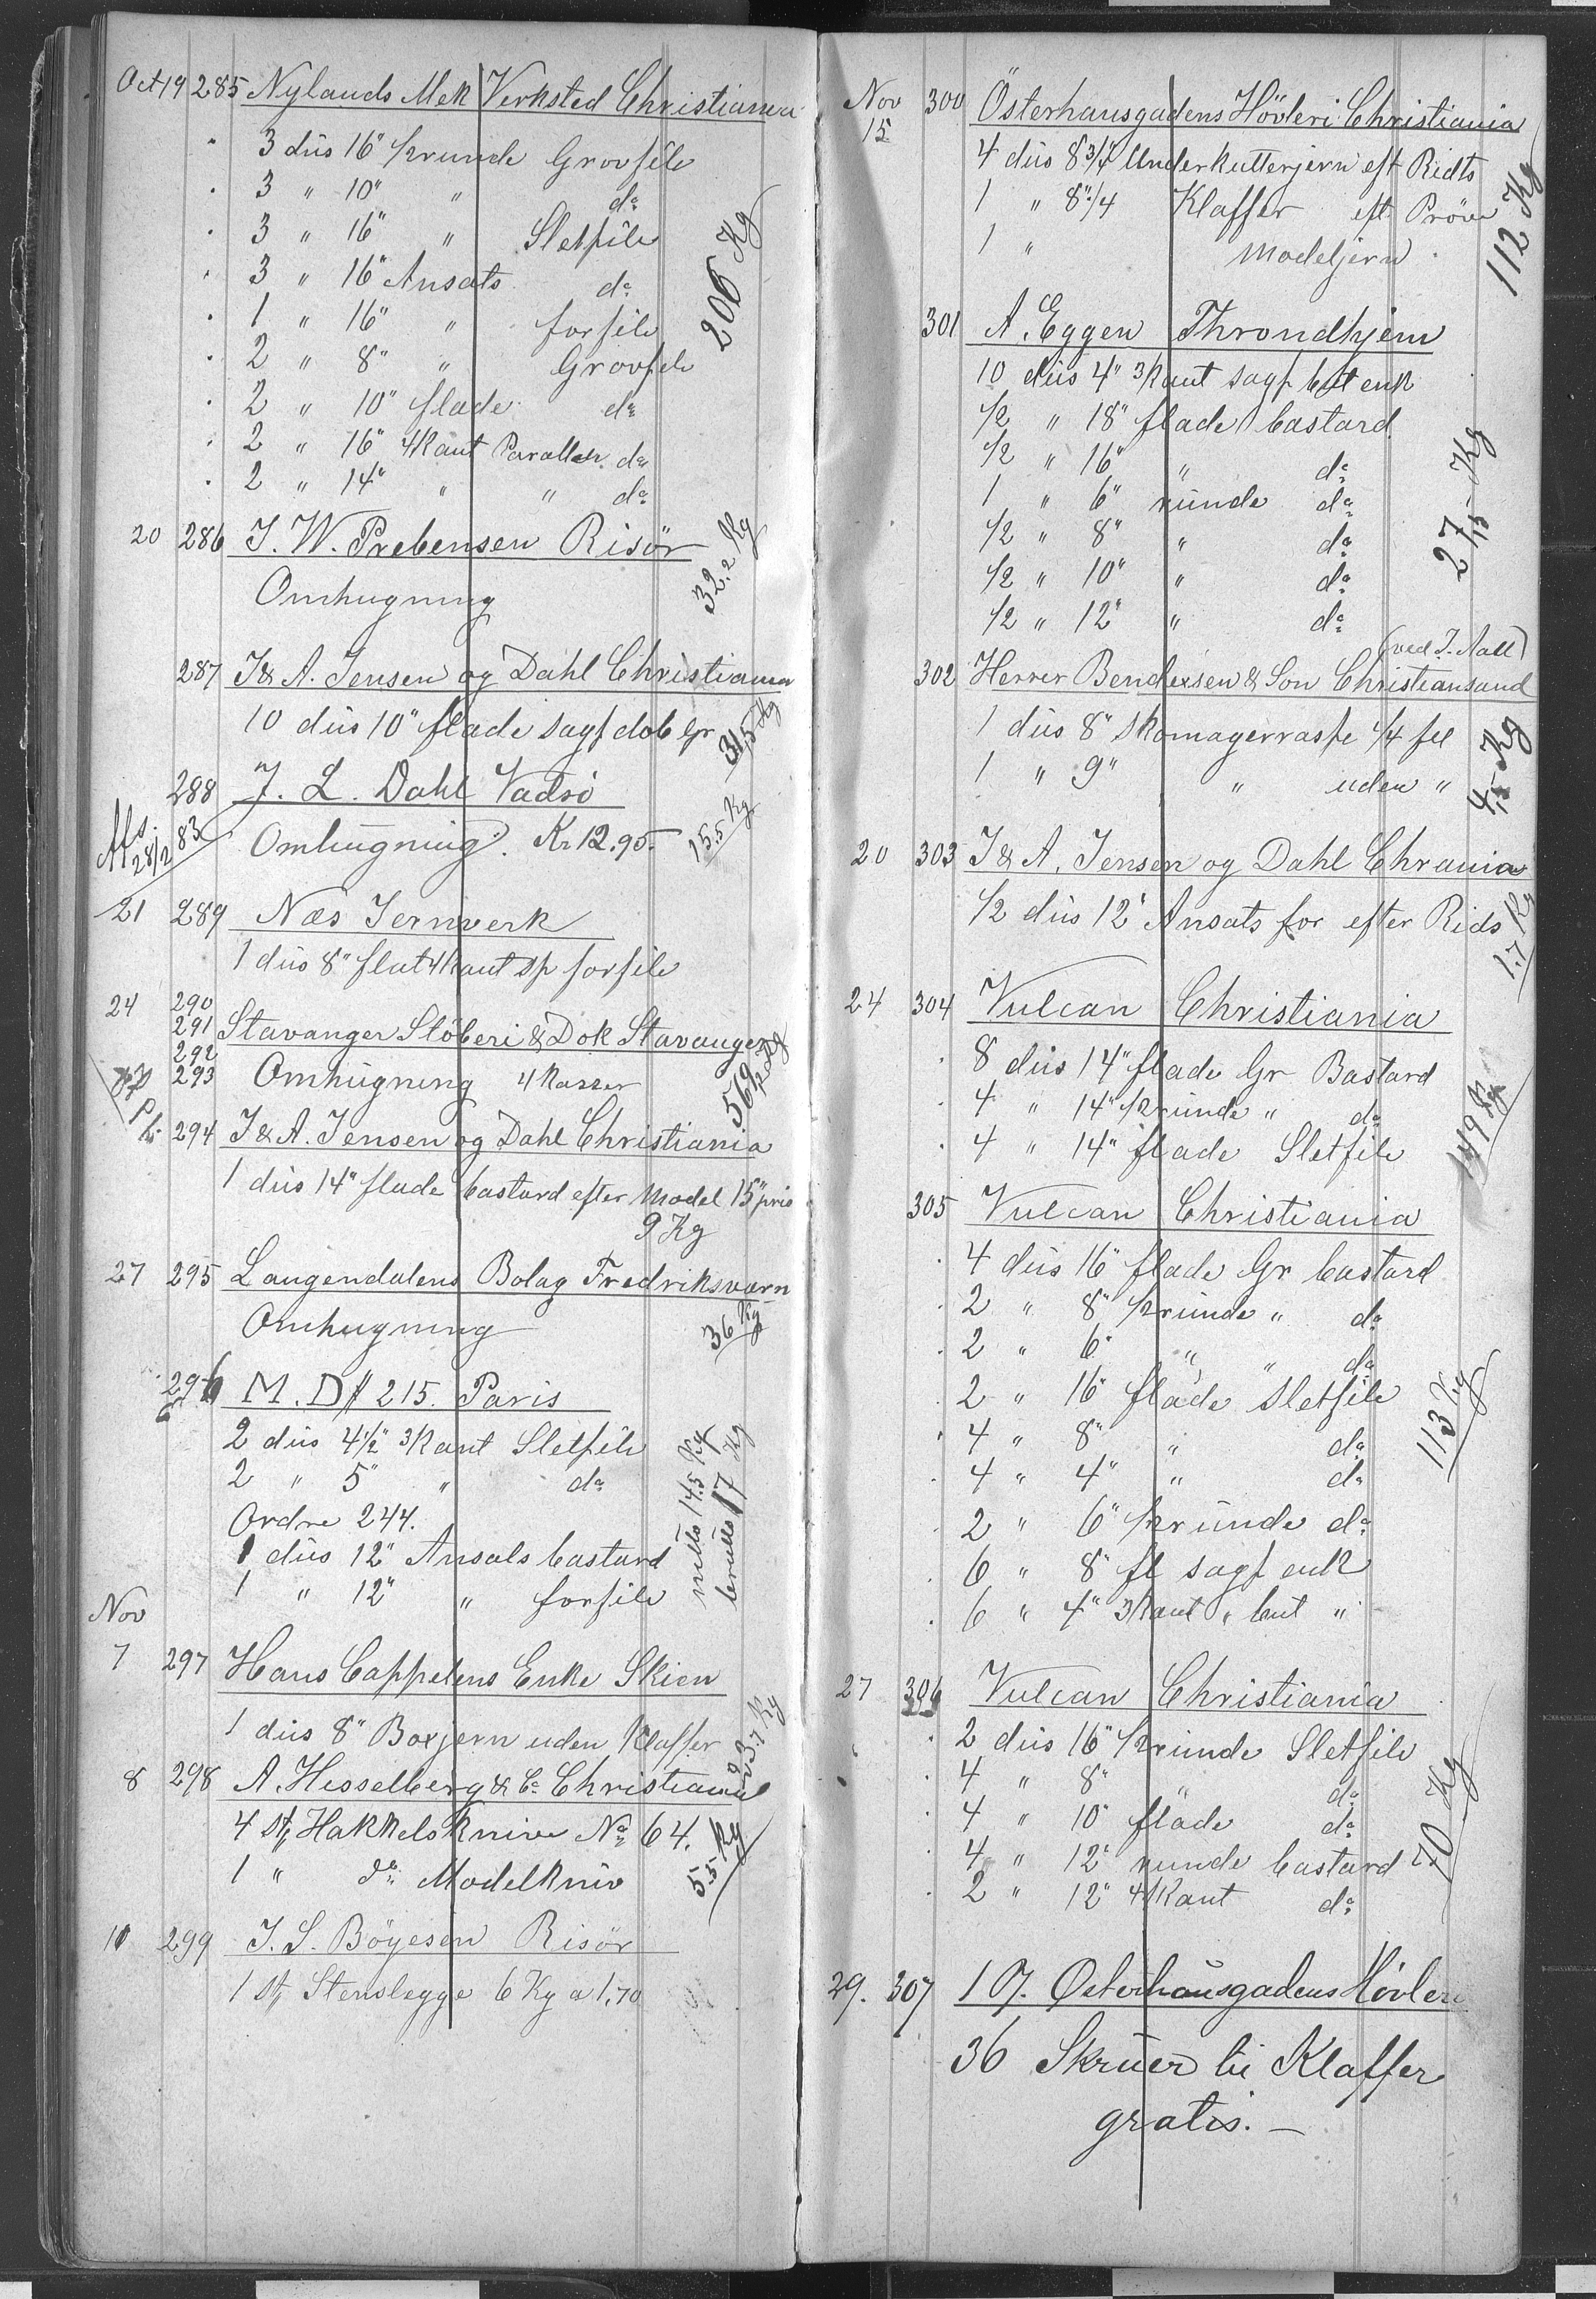 Oct 19 285 Nylands Mek Verksted Christiania
" 3 düs 16" 1/2 runde Grovfile
" 3 " 10" " do
" 3 " 16" " Sletfile
" 3 " 16" Ansats do
" 1 " 16" " forfile
" 2 " 8" " Grovfile
" 2 " 10" flade do
" 2 " 16" 4kant Parallel do
" 2 " 14" " " do
206 Kg
20 286 J. W. Prebensen Risör
Omhugning
32.2 Kg
287 J & A. Jensen og Dahl Christiania
10 düs 10" flade sagf dob Gr
31,5 Kg
288 J. L. Dahl Vadsö
Afs. 28/2 83 Omhügning. Kr 12.95.
15.5 Kg
21 289 Næs Jernverk
1 düs 8" flat 4kant sp forfile
24 290
291 Stavanger Stöberi & Dok Stavanger
292
293 Omhügning 4 Kasser
562 Kg
294 J & A. Jensen og Dahl Christiania
1 düs 14" flade bastard efter Model 15" pris
9 Kg
27 295 Langendalens Bolag Fredriksværn
Omhugning
36 Kg
296 M. D # 215. Paris
2 düs 4 1/2" 3kant Sletfile
2 " 5" " do
Ordre 244.
1 düs 12" Ansats bastard
1 " 12" " forfile
netto 14.5 Kg
brutto 17 Kg
Nov
7 297 Hans Cappelens Enke Skien
1 düs 8" Boxjern uden Klaffer
23.7 Kg
8 298 A. Hesselberg & Co Christiania
4 st, Hakkelsknive No 64.
1 " do Modelkniv
5.5 Kg
10 299 J. S. Böyesen Risör
1 st, Stenslegge 6 Kg a 1,70
Nov 15 300 Österhausgadens Hövleri Christiania
4 düs 8 3/4 Underkutterjern eft Ridts
1 " 8"/4 Klaffer eft Pröve
1 " Modeljern
112 Kg
301 A. Eggen Throndhjem
10 düs 4" 3kant sagf but enk
1/2 " 18" flade bastard
1/2 " 16" " do
1 " 6" runde do
1/2 " 8" " do
1/2 " 10" " do
1/2 " 12" " do
27,5 Kg
(ved J. Aall)
302 Herrer Bendixsen & Son Christiansand
1 düs 8" Skomagerraspe 1/4 fil
1 " 9" " uden "
4,5 Kg
20 303 J & A. Jensen og Dahl Chrania
1/2 düs 12" Ansats for efter Rids
1.7 Kg
24 304 Vulcan Christiania
" 8 düs 14" flade Gr Bastard
" 4 " 14" 1/2 runde " do
" 4 " 14" flade Sletfile
149 Kg
305 Vulcan Christiania
" 4 düs 16" flade Gr bastard
" 2 " 8" 1/2 runde " do
" 2 " 6" " " do
" 2 " 16" flade Sletfile
" 4 " 8" " do
" 4 " 4" " do
" 2 " 6" 1/2 runde do
" 6 " 8" fl sagf enk
" 6 " 4" 3kant " but "
113 Kg
27 306 Vulcan Christiania
" 2 düs 16" 1/2 runde Sletfile
" 4 " 8" " do
" 4 " 10" flade do
" 4 " 12" runde bastard
" 2 " 12" 4kant do
70 Kg
29. 307 Østerhausgadens Hövleri
36 Skruer til Klaffer
gratis. –